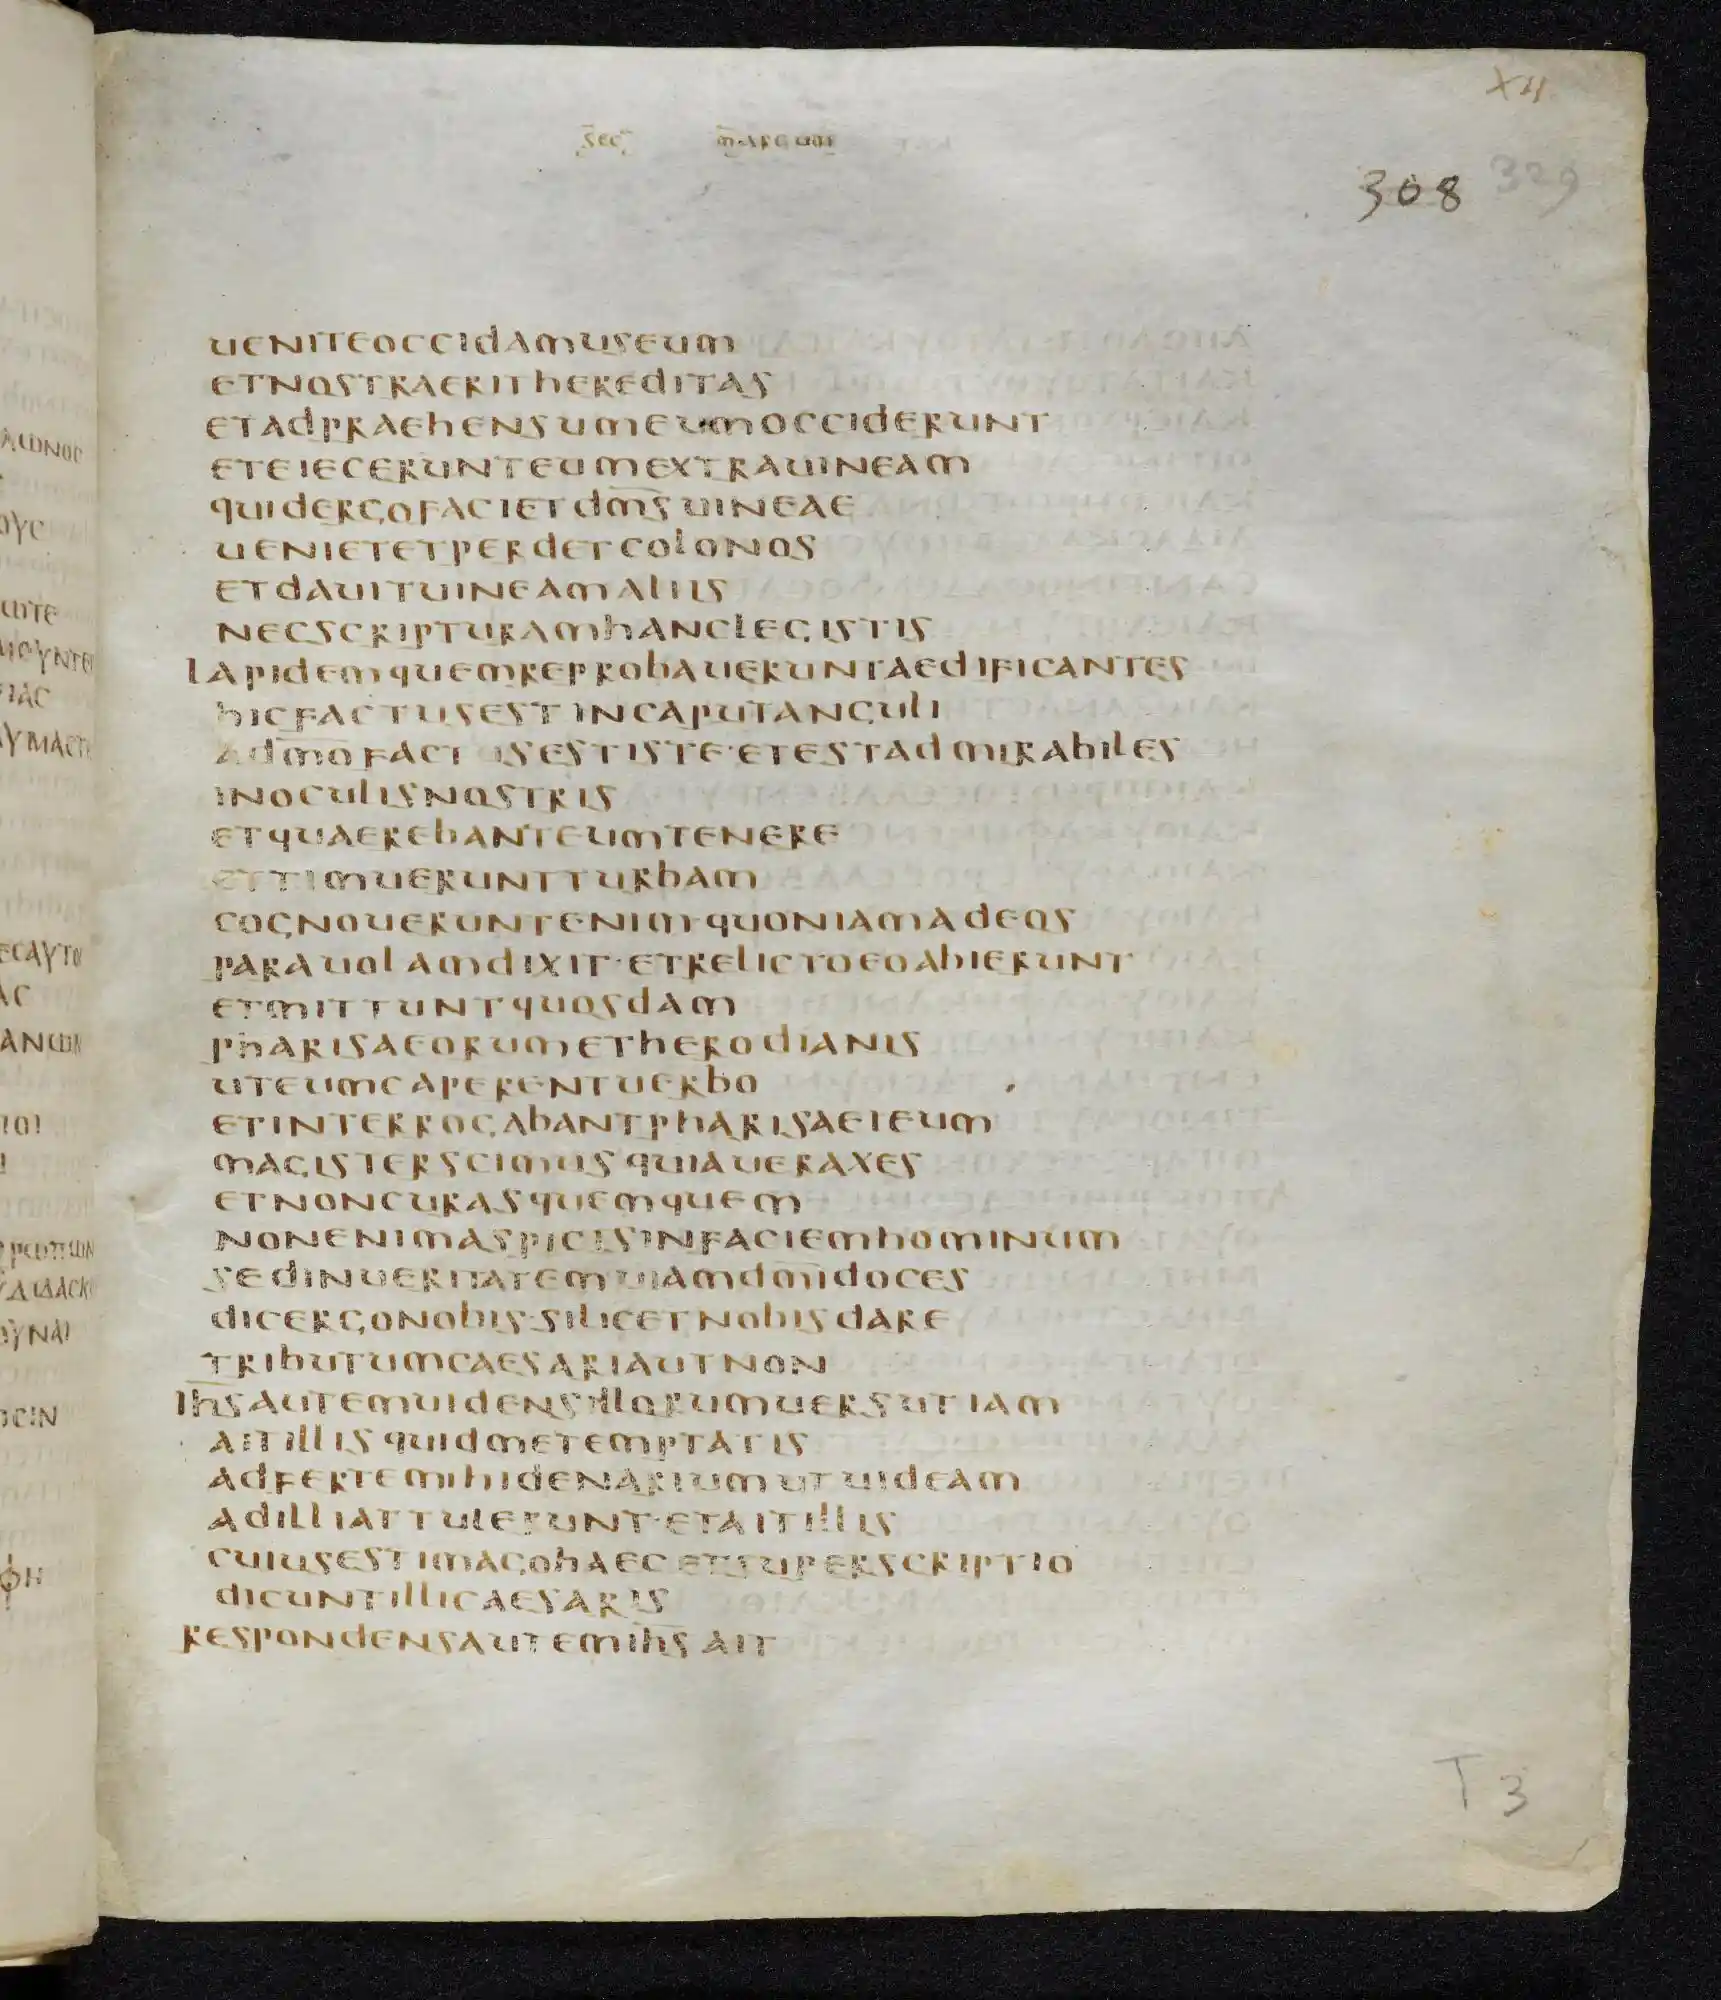 XII
sec marcum
308 329
ueniteoccidamuseum
etnostraerithereditas
etadpraehensumeumocciderunt
eteiecerunteumextrauineam
quidergofacietdm̅suineae
uenietetperdetcolonos
etdauituineamaliis
necscripturamhanclegistis
lapidemquemreprobaueruntaedificantes
hicfactusestincaputanguli
adm̅ofactusestiste·etestadmirabiles
inoculisnostris
etquaerebanteumtenere
ettimueruntturbam
cognoueruntenim·quoniamadeos
parauolamdixit·etrelictoeoabierunt
etmittuntquosdam
pharisaeorumetherodianis
uteumcaperentuerbo
etinterrogabantpharisaeieum
magisterscimusquiaueraxes
etnoncurasquemquem
nonenimaspicisinfaciemhominum
sedinueritatemuiamdm̅idoces
dicergonobis·silicetnobisdare
tributumcaesariautnon
ih̅sautemuidensillorumuersutiam
aitillisquidmetemptatis
adfertemihidenariumutuideam
adilliattulerunt·etaitillis
cuiusestimagohaecetsuperscriptio
dicuntillicaesaris
respondensautemih̅sait
T 3